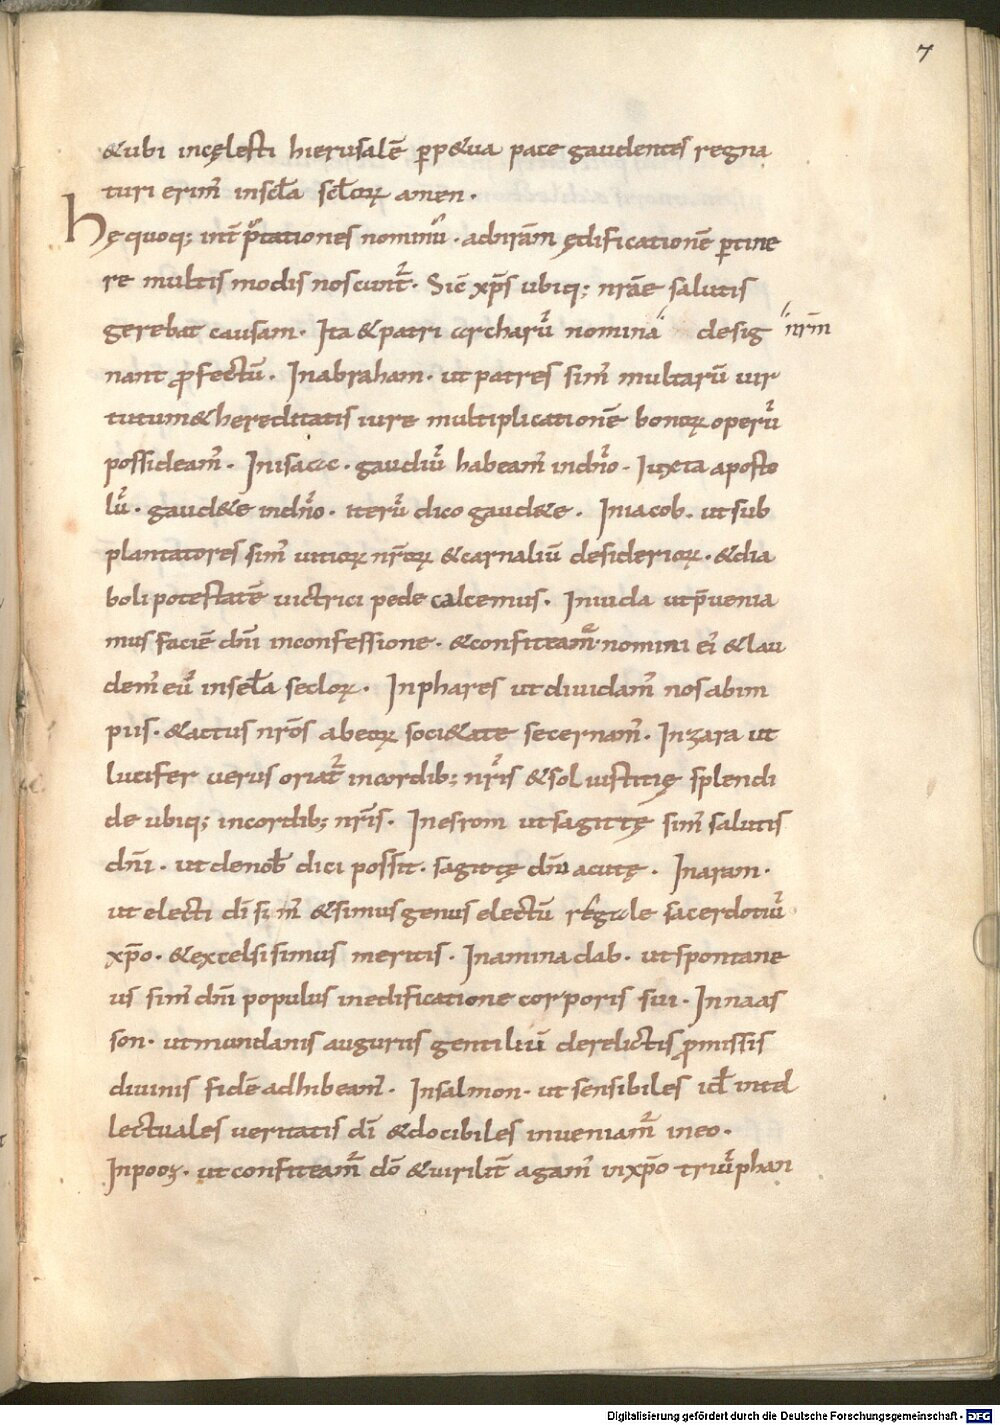 7
&ubi incęlesti hierusalē ꝑp&ua pace gaudentes regna
turi erim᾿ inscl̄a scl̄oꝝ amen.
Hęquoq; int̄p̄tationes nominū. adnr̄am ędificationē ꝑtine
re multis modis noscunt᾿. Sic̄ xp̄s ubiq; nr̄ae salutis
gerebat causam. Ita &patriarcharū nomina desig nr̄m
nant ꝓfectū. Inabraham. ut patres sim᾿ multarū uir
tutum&hereditatis iure multiplicationē bonoꝝ operū
possideam᾿. Inisaac. gaudiū habeam᾿ indn̄o. Iuxta aposto
lū. gaud&e indn̄o. iterū dico gaud&e. Iniacob. utsub
plantatores sim᾿ uitioꝝ nr̄oꝝ &carnaliū desiderioꝝ. &dia
boli potestatē uictrici pede calcemus. Iniuda utp̄uenia
mus faciē dn̄i inconfessione. &confiteam᾿ nomini ei᾿ &lau
dem᾿ eū inscl̄a secloꝝ. Inphares ut diuidam᾿ nos abim
piis. &actus nr̄os abeoꝝ soci&ate secernam᾿. Inzara ut
lucifer uerus oriat᾿ incordib; nr̄is &sol iustitię splendi
de ubiq; incordib; nr̄is. Inesrom utsagittę sim᾿ salutis
dn̄i. ut denob̄ dici possit. sagittę dn̄i acutę. Inaram.
ut electi dī sim᾿ &simus genus electū regale sacerdotiū
xp̄o. &excelsi simus meritis. Inaminadab. utspontane
us sim᾿ dn̄i populus inedificatione corporis sui. Innaas
son. utmundanis auguriis gentiliū derelictis ꝓmissis
diuinis fidē adhibeam᾿. Insalmon. ut sensibiles id̄ intel
lectuales ueritatis dī &docibiles inueniam᾿ ineo.
Inpooz. ut confiteam᾿ dō &uirilit̄ agam᾿ inxp̄o triūphan
Digitalisierung gefördert durch die Deutsche Forschungsgemeinschaft - DFG